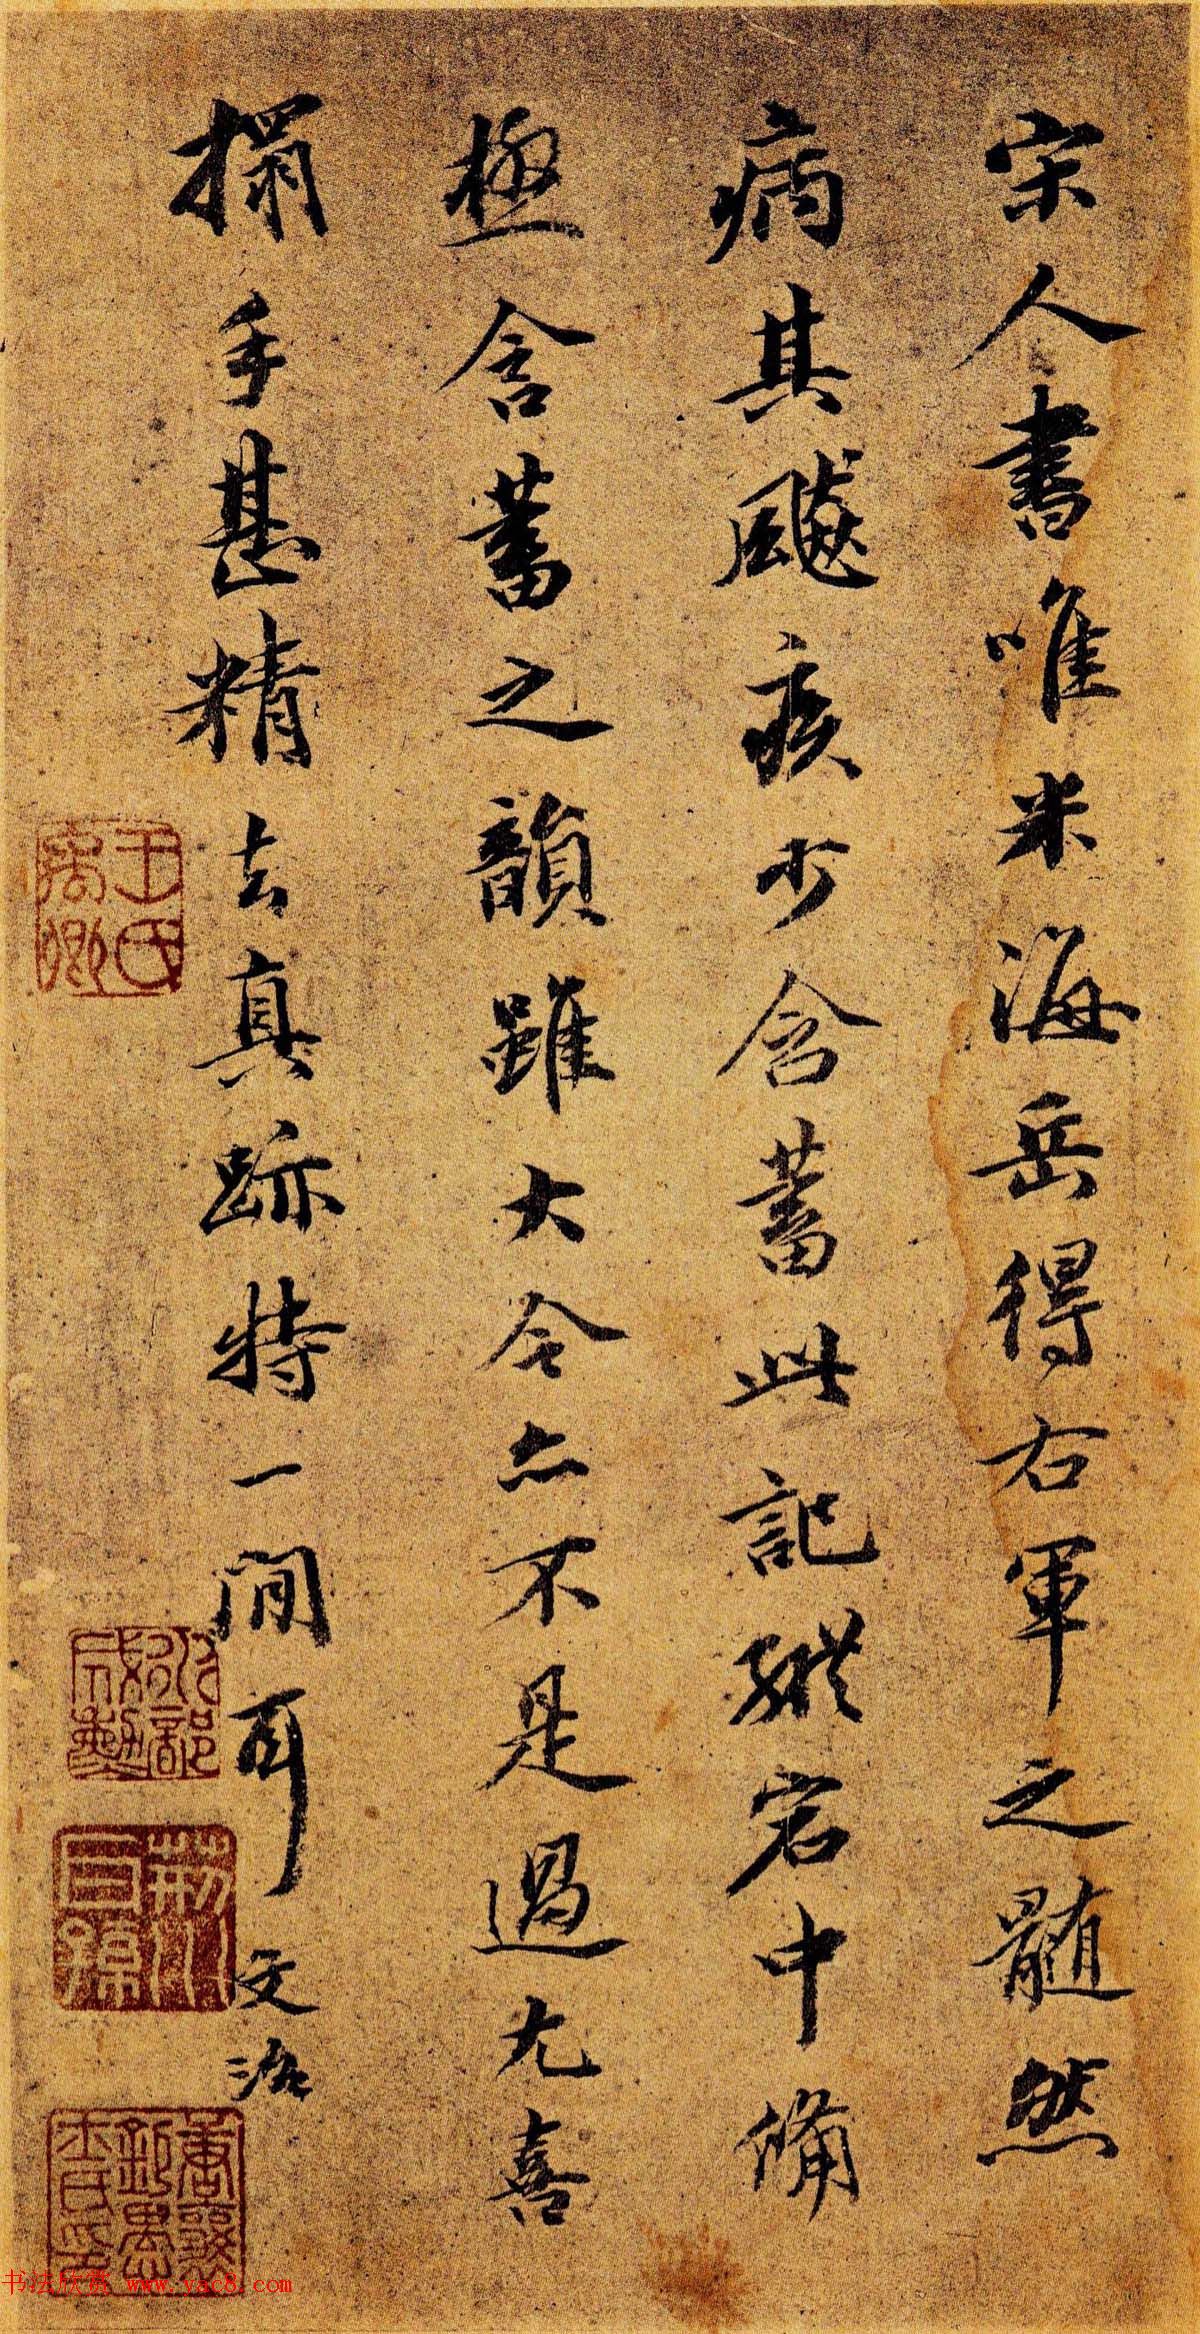 宋人書唯米海岳得右軍之髓然
病其飇疾少含蓄此記縱宕中備
極含蓄之韻雖大令亦不是過尤喜
搨手甚精去真跡特一間耳 文治
王氏禹卿
书法欣赏 www.yac8.com